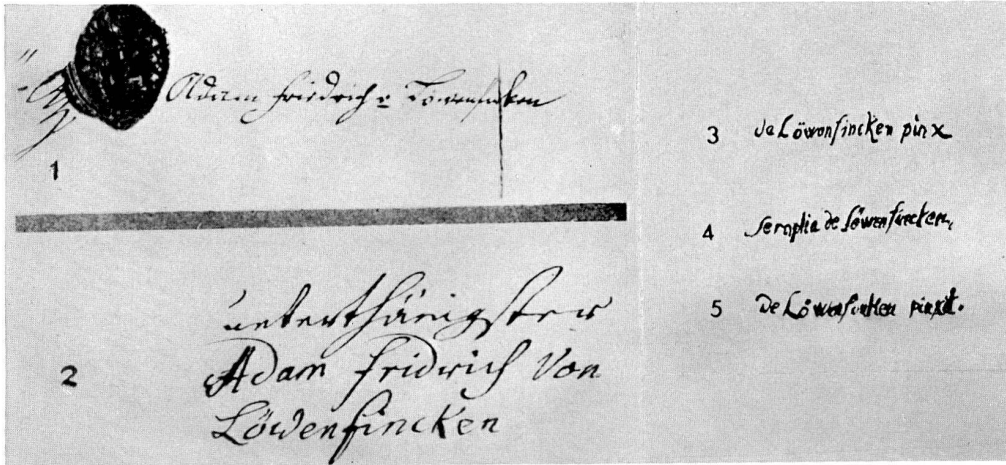 Adam Friedrich v Löwenfincken
1
unterthänigster
2 Adam Fridrich Von
Löwenfincken
3 de Löwenfincken pinx
4 Seraphia de Löwenfincken,
5 De Löwenfincken pinxit.